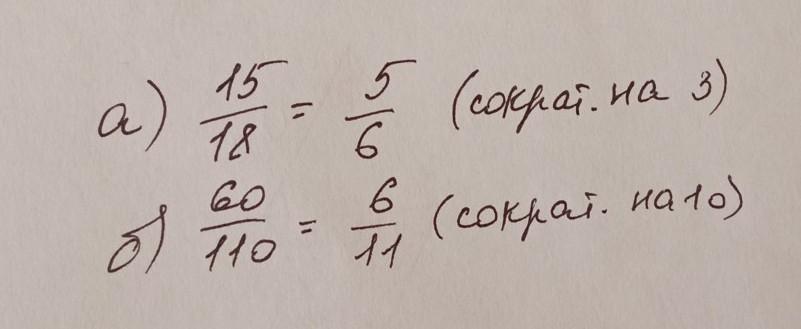 а) 15/18 = 5/6 (сократ. на 3)
б) 60/110 = 6/11 (сократ. на 10)